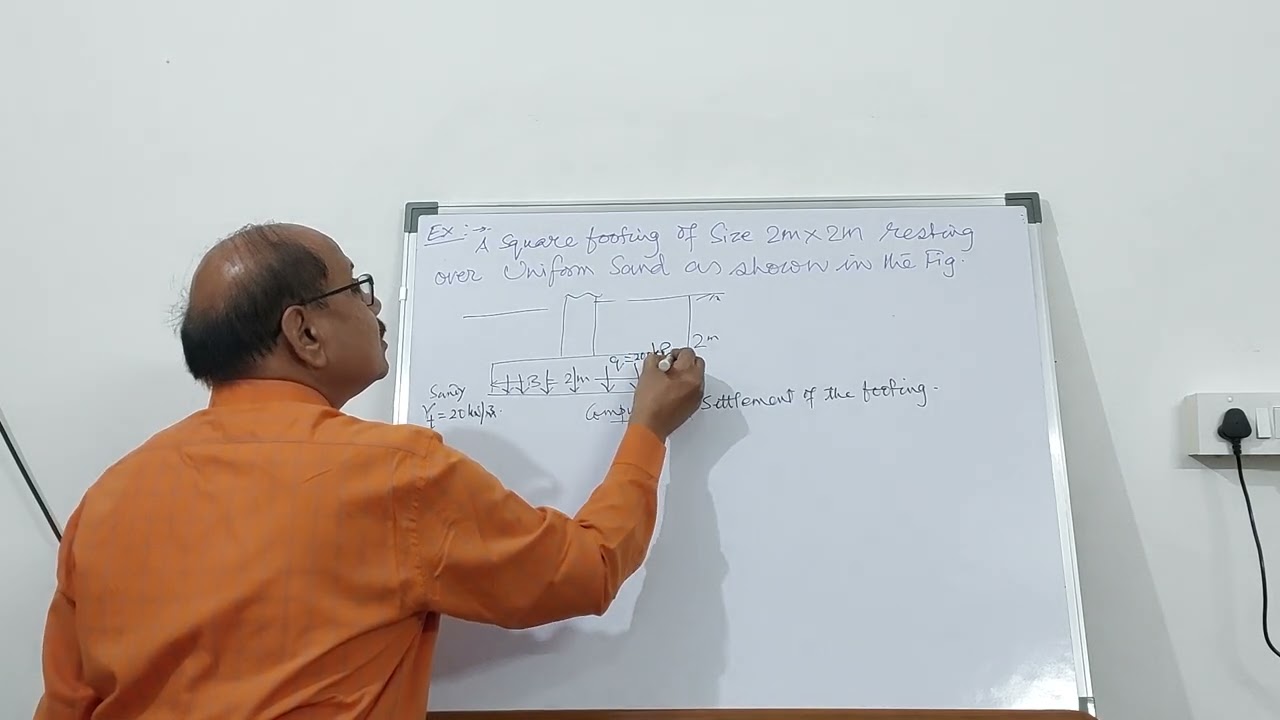 Ex:→ A square footing of size 2m×2m resting
over Uniform Sand as shown in the Fig.
2m
q=200kP
B = 2m
Sand
γt = 20 kN/m³.
Settlement of the footing.